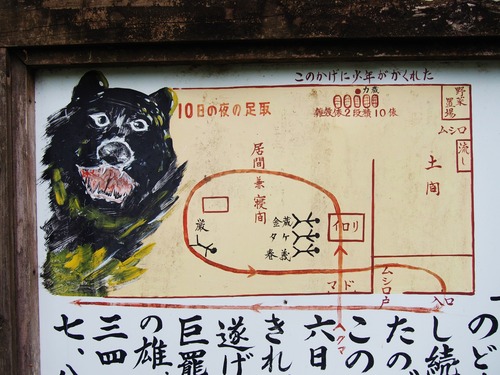 このかげに少年がかくれた
10日の夜の足取
力蔵
雑穀俵2段積10俵
野菜置場
ムシロ
流し
土間
居間兼寝間
イロリ
金蔵
タケ
春義
巌
マド
ムシロ戸
入口
クマ
のど
し続
たの
この
六日
きれ
遂げ
巨羆
の雄
三四
七、八